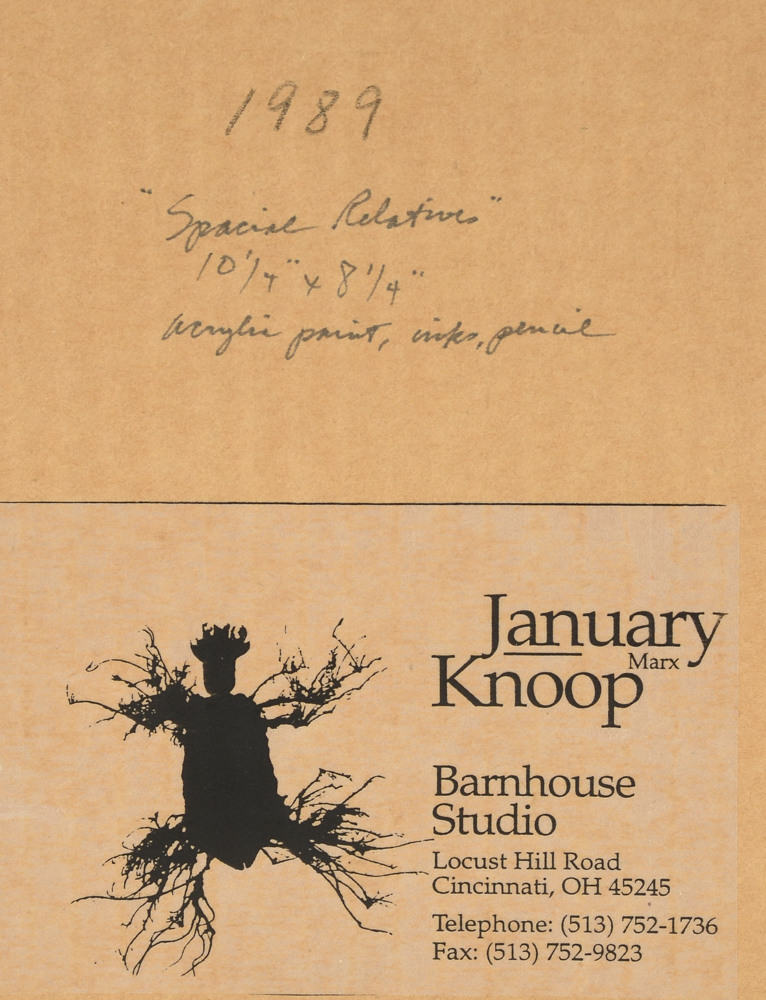 1989
"Spacial Relatives"
10 1/4" x 8 1/4"
acrylic paint, inks, pencil
January
Marx
Knoop
Barnhouse
Studio
Locust Hill Road
Cincinnati, OH 45245
Telephone: (513) 752-1736
Fax: (513) 752-9823